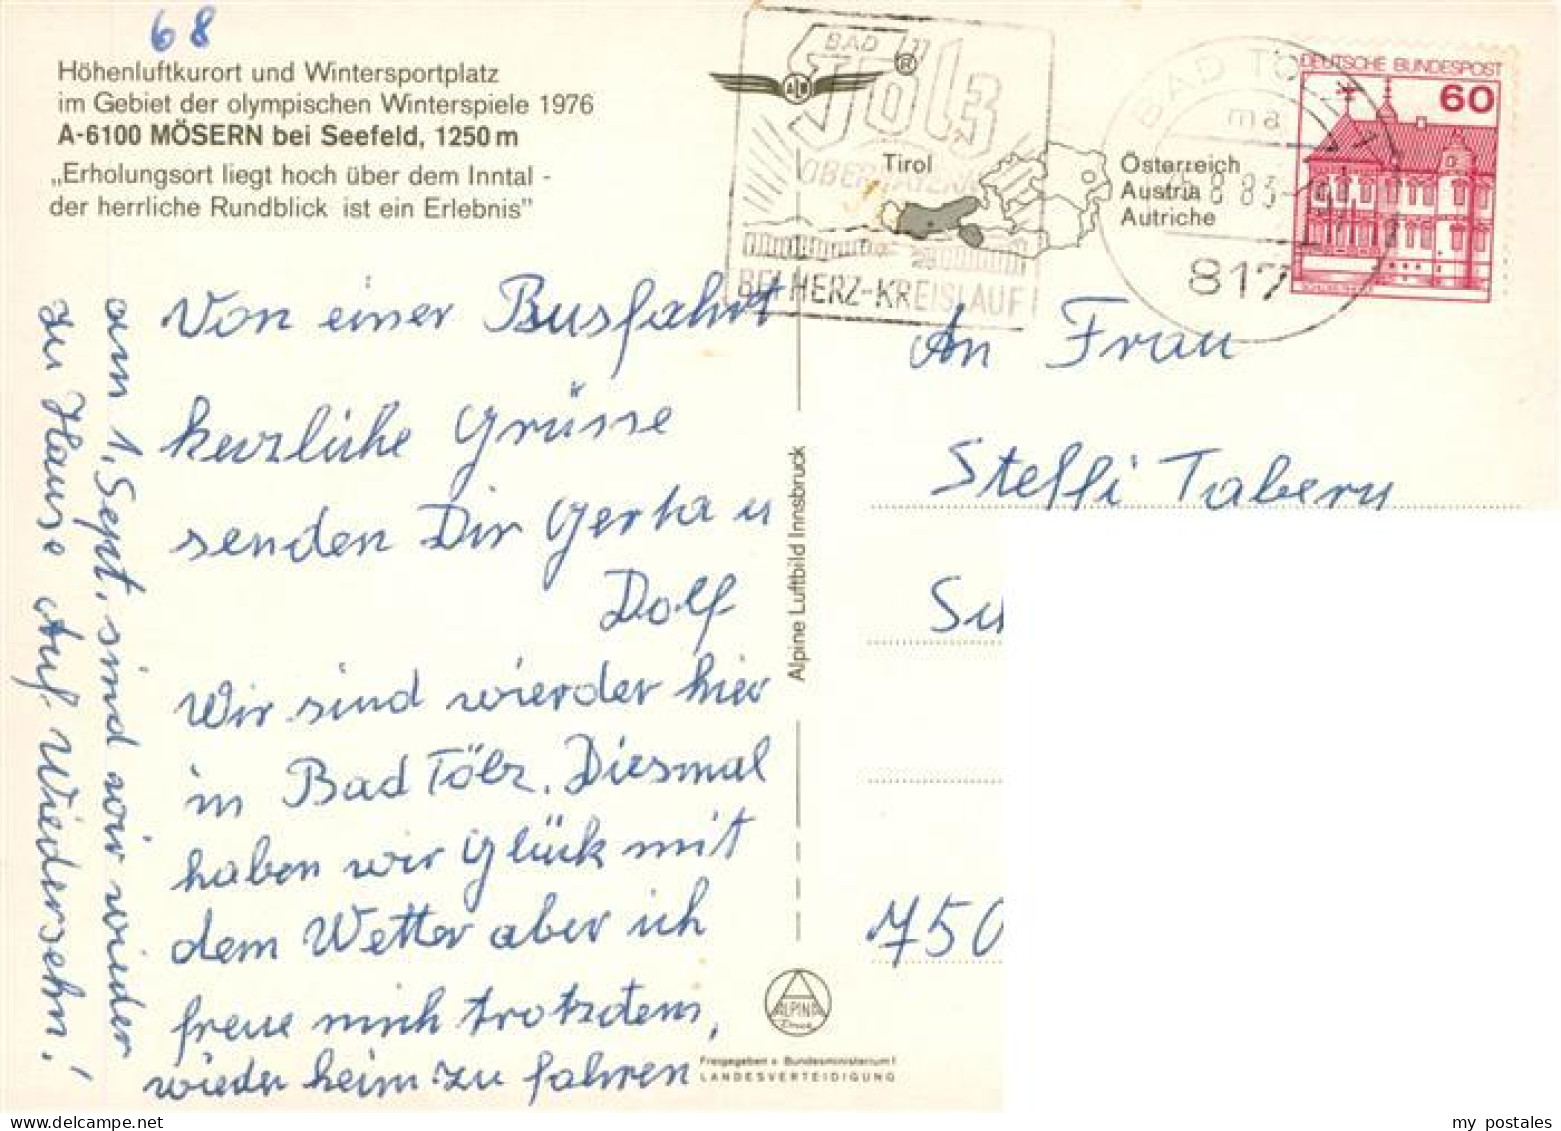 68
Höhenluftkurort und Wintersportplatz
im Gebiet der olympischen Winterspiele 1976
A-6100 MÖSERN bei Seefeld, 1250 m
„Erholungsort liegt hoch über dem Inntal -
der herrliche Rundblick ist ein Erlebnis"
BAD
Tölz
OBERBAYERN
BEI HERZ-KREISLAUF
ALW
Tirol
Österreich
Austria
Autriche
BAD TÖLZ
ma
8 83
817
DEUTSCHE BUNDESPOST
60
Von einer Busfahrt
herzliche Grüsse
senden Dir Gerta u
Dolf
Wir sind wierder hier
in Bad Tölz. Diesmal
haben wir Glück mit
dem Wetter aber ich
freue mich trotzdem,
wieder heim zu fahren
am 1. Sept. sind wir wieder
zu Hause Auf Wiedersehn!
Alpine Luftbild Innsbruck
ALPINA
Druck
Freigegeben v. Bundesministerium f.
LANDESVERTEIDIGUNG
An Frau
Steffi Tabery
750
my postales